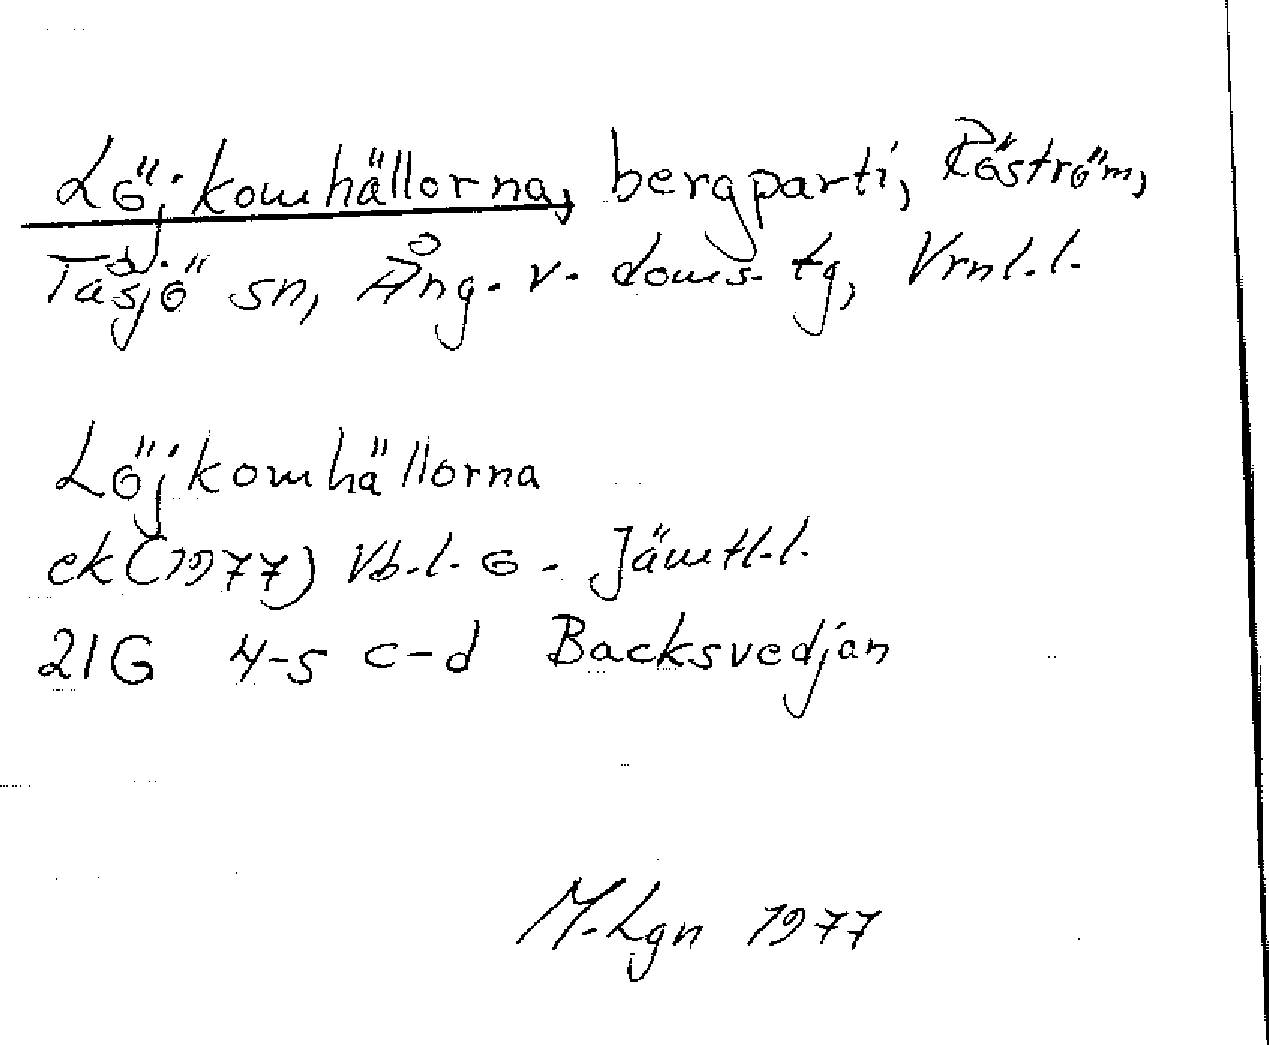 Löjkomhällorna, bergparti, Röström,
Tåsjö sn, Ång. v. doms. tg, Vrnl.l.
Löjkomhällorna
ek (1977) Vb.l. o. Jämtl.l.
21G 4-5 c-d Backsvedjan
M.Lgn 1977